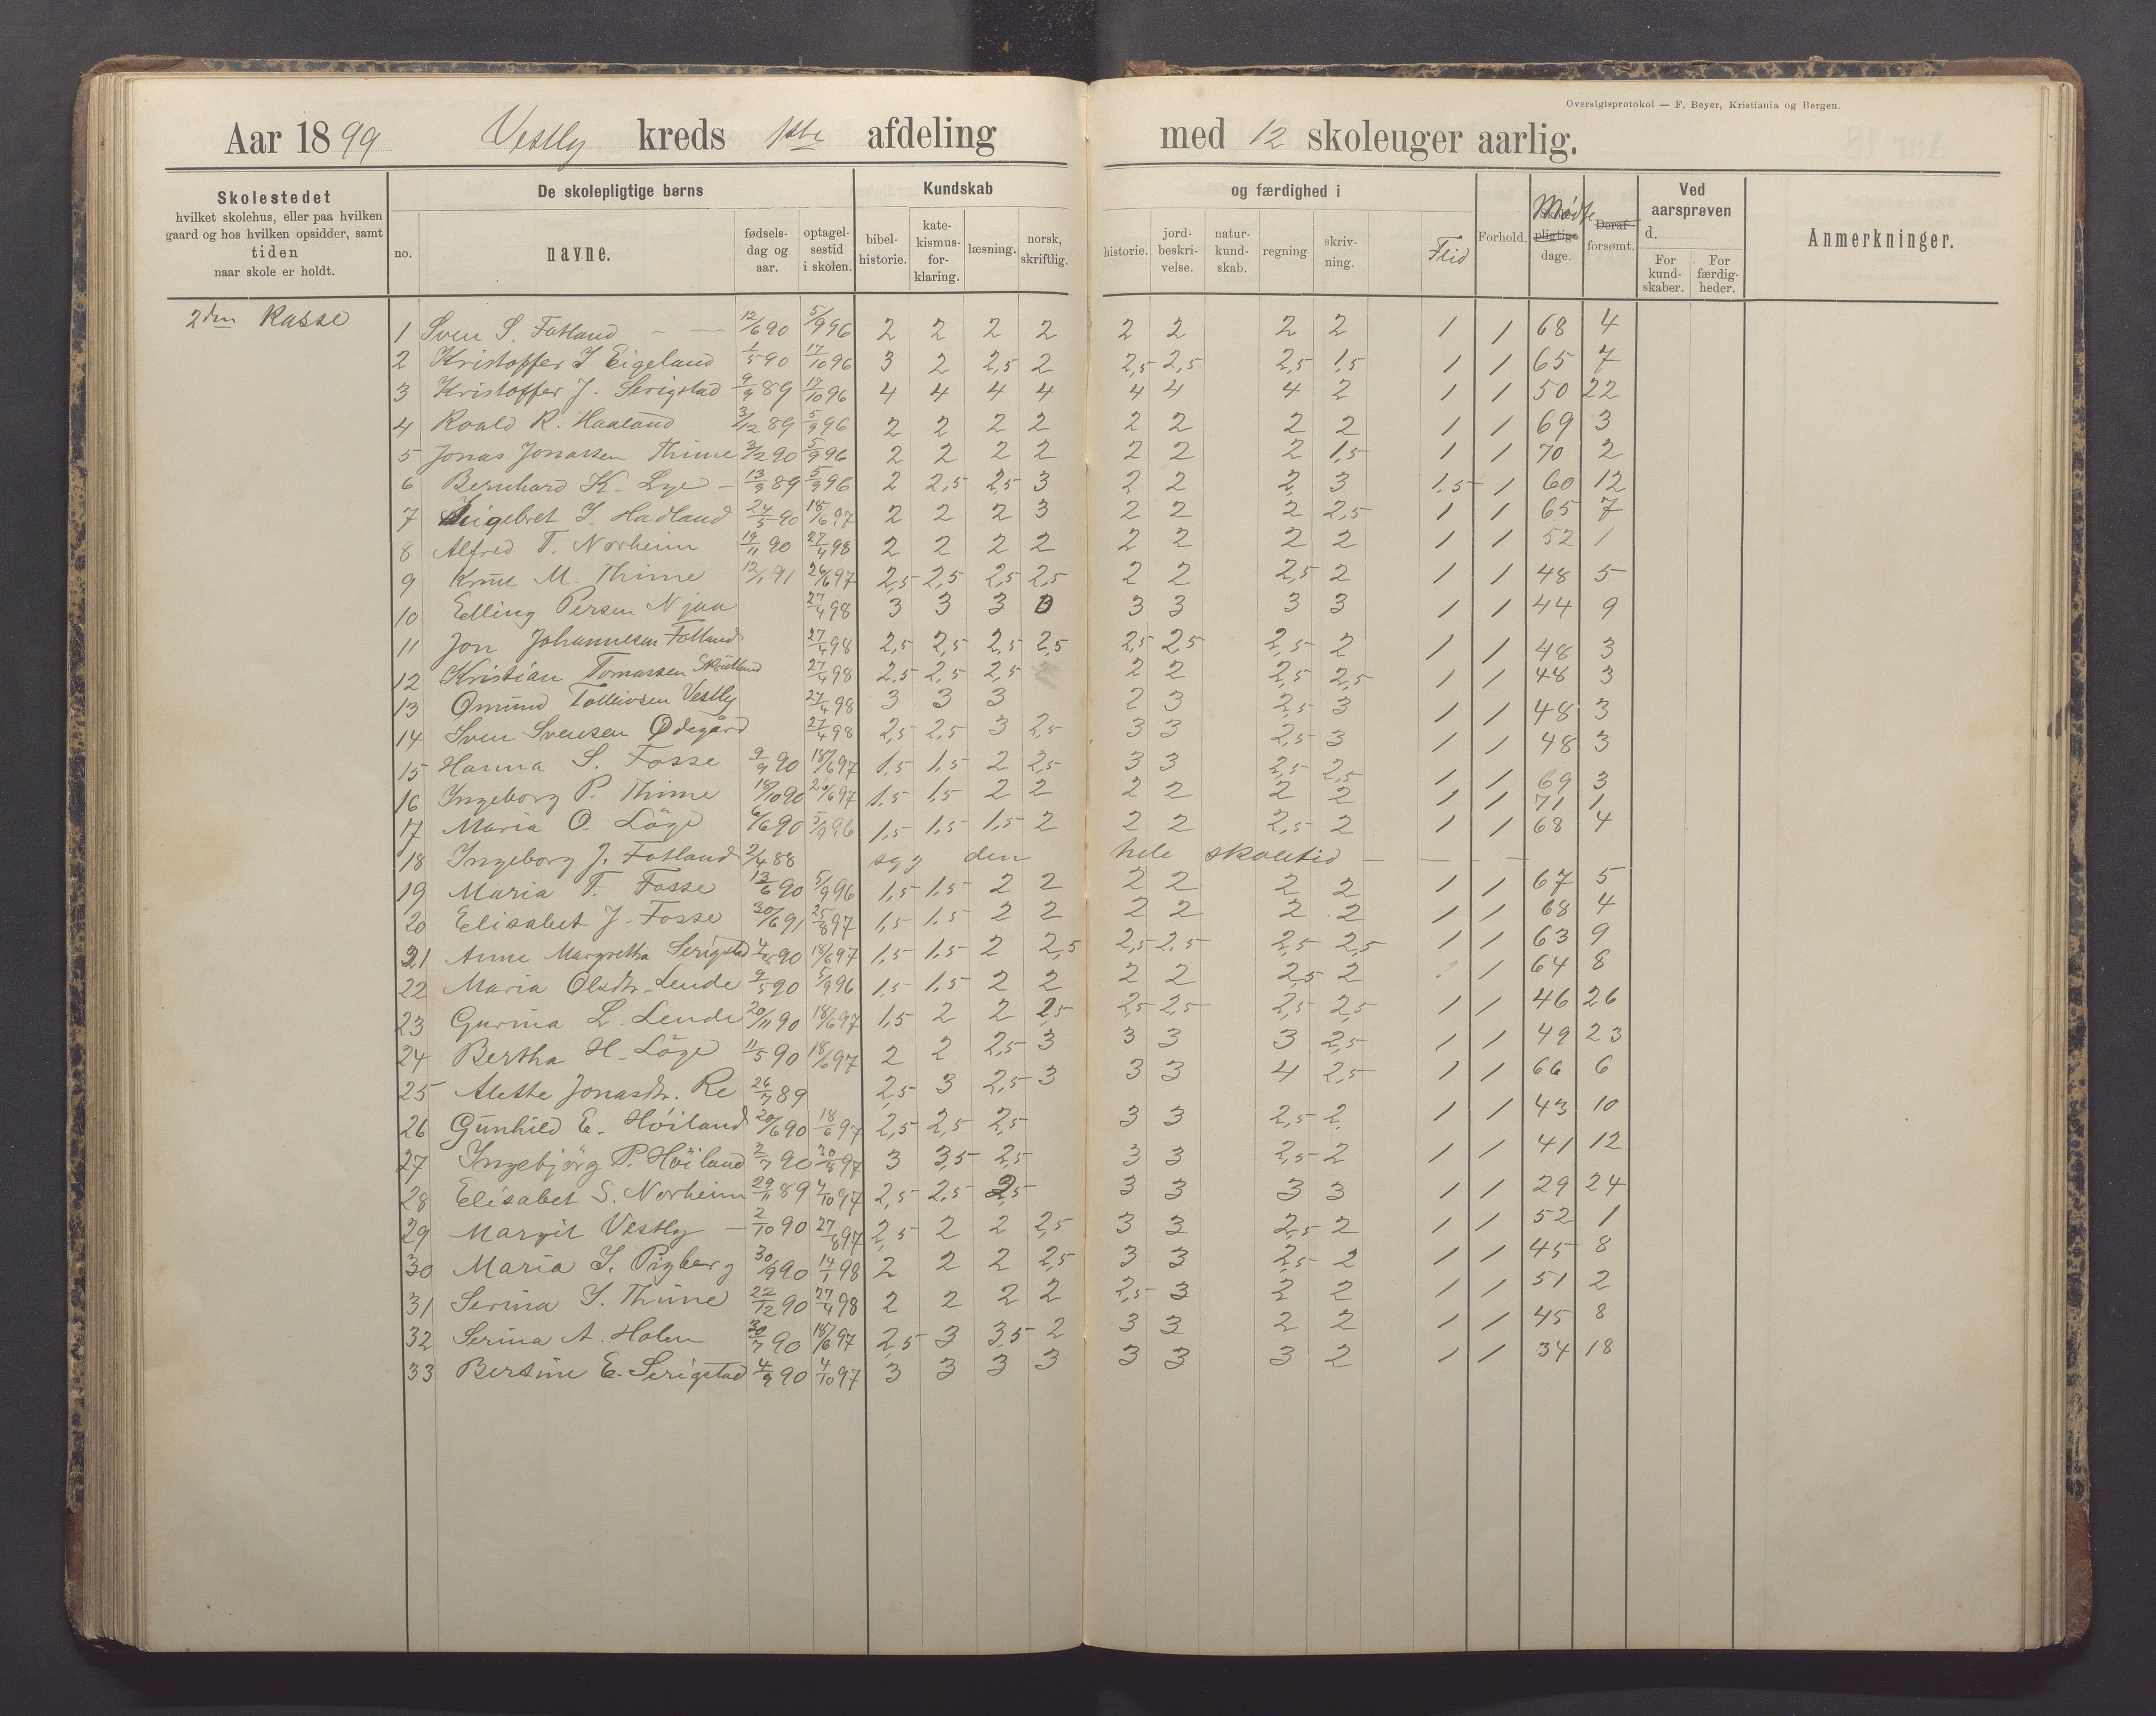 Oversigtsprotokol — F. Beyer, Kristiania og Bergen.
Aar 1899 Vestly kreds 1ste afdeling med 12 skoleuger aarlig.
Skolestedet hvilket skolehus, eller paa hvilken gaard og hos hvilken opsidder, samt tiden naar skole er holdt.
De skolepligtige børns
no. navne. fødselsdag og aar. optagelsestid i skolen.
Kundskab og færdighed i
bibelhistorie. katekismusforklaring. læsning. norsk, skriftlig. historie. jordbeskrivelse. naturkundskab. regning skrivning. Flid Forhold. Mødte skolepligtige dage. Deraf forsømt.
Ved aarsprøven d.
For kundskaber. For færdigheder.
Anmerkninger.
2den Klasse
1 Sven S. Fotland — — 12/6 90 5/9 96 2 2 2 2 2 2 2 2 1 1 68 4
2 Kristoffer J Eigeland 1/5 90 17/10 96 3 2 2,5 2 2,5 2,5 2,5 1,5 1 1 65 7
3 Kristoffer J. Serigstad 9/9 89 17/10 96 4 4 4 4 4 4 4 2 1 1 50 22
4 Roald R. Haaland 3/12 89 5/9 96 2 2 2 2 2 2 2 2 1 1 69 3
5 Jonas Jonassen Thime 3/2 90 5/9 96 2 2 2 2 2 2 2 1,5 1 1 70 2
6 Bernhard K. Lye — 13/9 89 5/9 96 2 2,5 2,5 3 2 2 2 3 1,5 1 60 12
7 Ingebret J. Hadland 24/5 90 18/6 97 2 2 2 3 2 2 2 2,5 1 1 65 7
8 Alfred T. Norheim 19/11 90 27/4 98 2 2 2 2 2 2 2 2 1 1 52 1
9 Knut M. Thime 12/1 91 26/6 97 2,5 2,5 2,5 2,5 2 2 2,5 2 1 1 48 5
10 Elling Persen Njaa 27/4 98 3 3 3 0 3 3 3 3 1 1 44 9
11 Jon Johannesen Fotland 27/4 98 2,5 2,5 2,5 2,5 2,5 2,5 2,5 2 1 1 48 3
12 Kristian Tomassen 27/4 98 2,5 2,5 2,5 2 2 2,5 2,5 1 1 48 3
13 Omund Tolleivsen Vestly 27/4 98 3 3 3 2 3 2,5 3 1 1 48 3
14 Sven Svensen Ødegård 27/4 98 2,5 2,5 3 2,5 3 3 2,5 3 1 1 48 3
15 Hanna S. Fosse 9/9 90 18/6 97 1,5 1,5 2 2,5 3 3 2,5 2,5 1 1 69 3
16 Ingeborg P. Thime 18/10 90 26/6 97 1,5 1,5 2 2 2 2 2 2 1 1 71 1
17 Maria O. Löge 6/6 90 5/9 96 1,5 1,5 1,5 2 2 2 2,5 2 1 1 68 4
18 Ingeborg J. Fotland 2/4 88 syg den hele skoletid — — — —
19 Maria T. Fosse 13/6 90 5/9 96 1,5 1,5 2 2 2 2 2 2 1 1 67 5
20 Elisabet J. Fosse 30/6 91 25/8 97 1,5 1,5 2 2 2 2 2 2 1 1 68 4
21 Anne Margretha Serigstad 90 18/6 97 1,5 1,5 2 2,5 2,5 2,5 2,5 2,5 1 1 63 9
22 Maria Olsdtr. Lende 9/5 90 5/9 96 1,5 1,5 2 2 2 2 2,5 2 1 64 8
23 Gurina L. Lende 20/11 90 18/6 97 1,5 2 2 2,5 2,5 2,5 2,5 2,5 1 1 46 26
24 Bertha H. Löge 11/5 90 18/6 97 2 2 2,5 3 3 3 3 2,5 1 1 49 23
25 Alette Jonasdtr. Re 26/7 89 2,5 3 2,5 3 3 3 4 2,5 1 1 66 6
26 Gunhild E. Höiland 20/6 90 18/6 97 2,5 2,5 2,5 3 3 2,5 2 1 1 43 10
27 Ingebjörg P. Höiland 2/7 90 30/8 97 3 3,5 2,5 3 3 2,5 2 1 1 41 12
28 Elisabet S. Norheim 29/11 89 4/10 97 2,5 2,5 2,5 3 3 3 3 1 1 29 24
29 Margit Vestly — 2/10 90 27/8 97 2,5 2 2 2,5 3 3 2,5 2 1 1 52 1
30 Maria J. 30/9 90 14/1 98 2 2 2 2,5 3 3 2,5 2 1 1 45 8
31 Serina J. Thime 22/12 90 27/4 98 2 2 2 2 2,5 3 2 2 1 1 51 2
32 Serina A. Holen 30/7 90 18/6 97 2,5 3 3,5 2 3 3 2 2 1 1 45 8
33 Bertine E. Serigstad 4/9 90 4/10 97 3 3 3 3 3 3 3 2 1 1 34 18